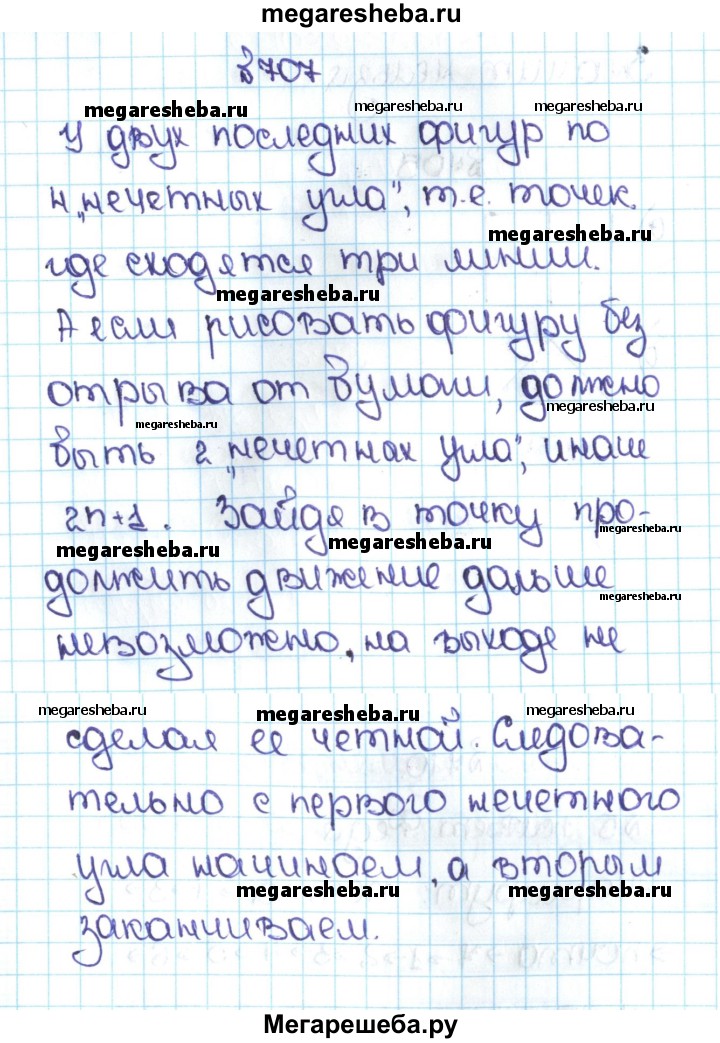 megaresheba.ru
№707
megaresheba.ru megaresheba.ru megaresheba.ru
У двух последних фигур по
4 „нечетных угла", т.е. точек
megaresheba.ru
где сходятся три линии.
megaresheba.ru
А если рисовать фигуру без
отрыва от бумаги, должно
megaresheba.ru
megaresheba.ru
быть 2 „нечетнах угла", иначе
2n+1. Зайдя в точку про-
megaresheba.ru megaresheba.ru
должить движение дальше
megaresheba.ru
невозможно, на выходе не
megaresheba.ru megaresheba.ru megaresheba.ru
сделая ее четной. Следова-
тельно с первого нечетного
угла начинаем, а вторым
megaresheba.ru megaresheba.ru
заканчиваем.
Мегарешеба.ру